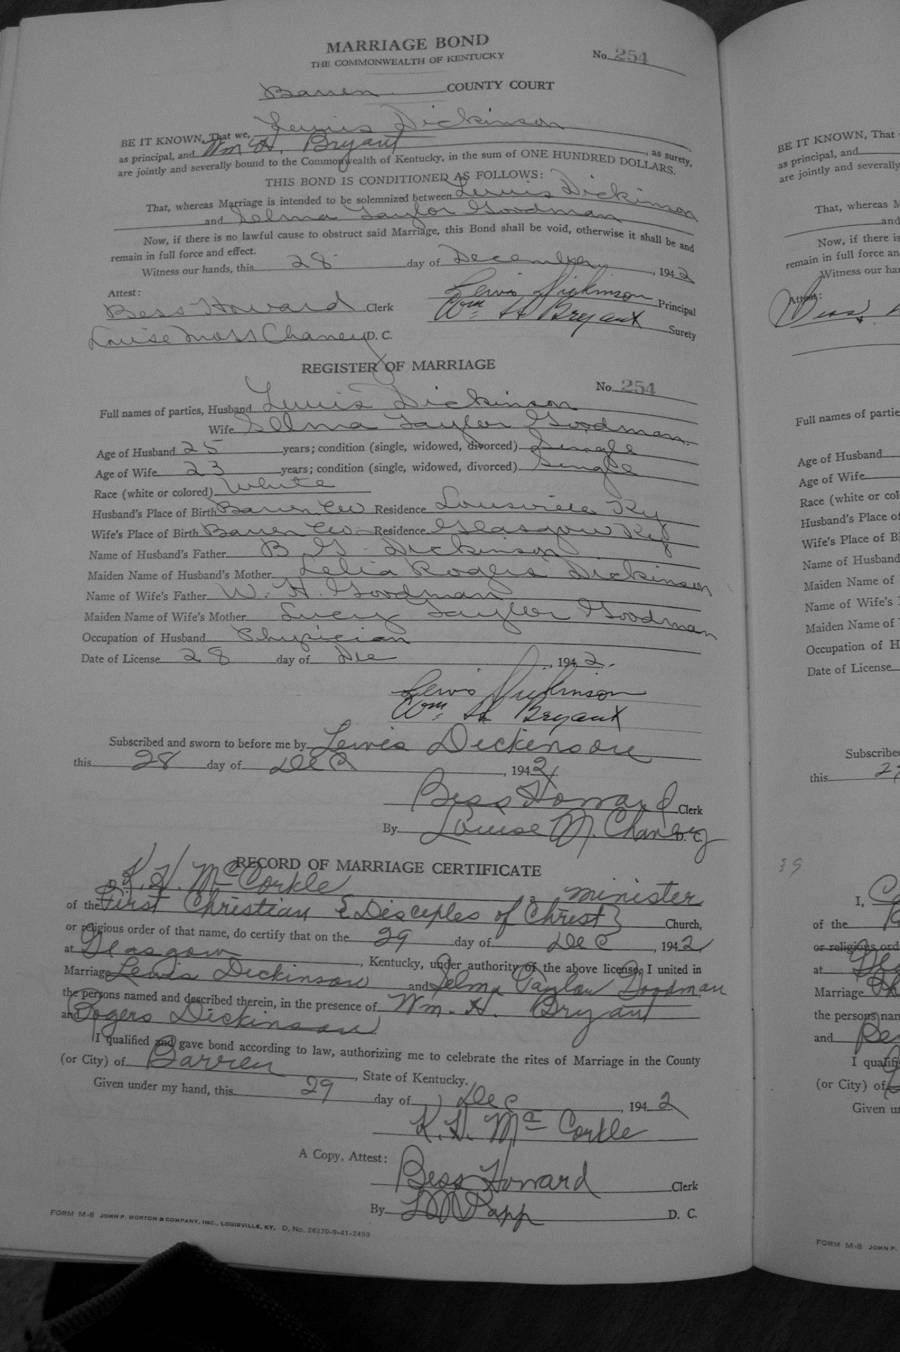 MARRIAGE BOND
THE COMMONWEALTH OF KENTUCKY
No. 254
Barren COUNTY COURT
BE IT KNOWN, That we, Lewis Dickinson
as principal, and Wm H. Bryant, as surety,
are jointly and severally bound to the Commonwealth of Kentucky, in the sum of ONE HUNDRED DOLLARS.
THIS BOND IS CONDITIONED AS FOLLOWS:
That, whereas Marriage is intended to be solemnized between Lewis Dickinson
and Selma Taylor Goodman
Now, if there is no lawful cause to obstruct said Marriage, this Bond shall be void, otherwise it shall be and
remain in full force and effect.
Witness our hands, this 28 day of December, 1942
Attest: Lewis Dickinson Principal
Bess Howard Clerk Wm H Bryant Surety
Louise Moss Chaney D. C.
REGISTER OF MARRIAGE
No. 254
Full names of parties, Husband Lewis Dickinson
Wife Selma Taylor Goodman
Age of Husband 25 years; condition (single, widowed, divorced) Single
Age of Wife 23 years; condition (single, widowed, divorced) Single
Race (white or colored) White
Husband's Place of Birth Barren Co Residence Louisville Ky
Wife's Place of Birth Barren Co Residence Glasgow Ky
Name of Husband's Father B G Dickinson
Maiden Name of Husband's Mother Lelia Rogers Dickinson
Name of Wife's Father W. H. Goodman
Maiden Name of Wife's Mother Lucy Taylor Goodman
Occupation of Husband Physician
Date of License 28 day of Dec, 1942.
Lewis Dickinson
Wm. H. Bryant
Subscribed and sworn to before me by Lewis Dickinson
this 28 day of Dec, 1942
Bess Howard Clerk
By Louise M. Chaney D. C.
RECORD OF MARRIAGE CERTIFICATE
I, K. H. McCorkle, minister
of the First Christian {Disciples of Christ} Church,
or religious order of that name, do certify that on the 29 day of Dec, 1942
at Glasgow, Kentucky, under authority of the above license, I united in
Marriage Lewis Dickinson and Selma Taylor Goodman
the persons named and described therein, in the presence of Wm. H. Bryant
and Rogers Dickinson
I qualified and gave bond according to law, authorizing me to celebrate the rites of Marriage in the County
(or City) of Barren, State of Kentucky.
Given under my hand, this 29 day of Dec, 1942
K. H. McCorkle
A Copy, Attest: Bess Howard Clerk
By D. C.
FORM M-8 JOHN P. MORTON & COMPANY, INC., LOUISVILLE, KY.
BE IT KNOWN, That
as principal, and
are jointly and severally
That, whereas
and
Now, if there is
remain in full force an
Witness our ha
Attest:
Bess
Full names of partie
Age of Husband
Age of Wife
Race (white or col
Husband's Place of
Wife's Place of B
Name of Husband
Maiden Name of
Name of Wife's
Maiden Name of
Occupation of H
Date of License
Subscribe
this
39
I,
of the
or religious ord
at
Marriage
the persons nam
and
I qualifi
(or City) of
Given un
FORM M-8 JOHN P.